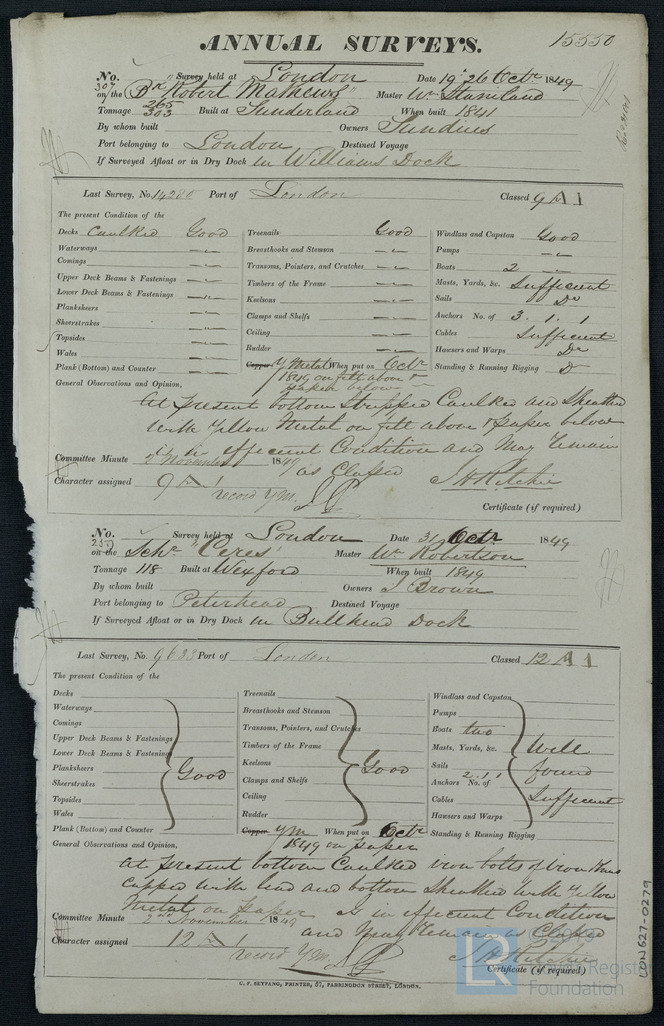 15550
ANNUAL SURVEYS.
No. Survey held at London Date 19 26 Octr 1849
307 on the Bk "Robert Mathews" Master Wm Staniland
Tonnage 265 303 Built at Sunderland When built 1841
By whom built Owners Sundries
Port belonging to London Destined Voyage
If Surveyed Afloat or in Dry Dock in Williams Dock
Last Survey, No. 14280 Port of London Classed 9 A 1
The present Condition of the
Decks Caulked Good Treenails Good Windlass and Capstan Good
Waterways Breasthooks and Stemson Pumps
Comings Transoms, Pointers, and Crutches Boats 2
Upper Deck Beams & Fastenings Timbers of the Frame Masts, Yards, &c. Sufficient
Lower Deck Beams & Fastenings Keelsons Sails Do
Planksheers Clamps and Shelfs Anchors No. of 3. 1. 1
Sheerstrakes Ceiling Cables Sufficient
Topsides Rudder Hawsers and Warps Do
Wales Copper Y Metal When put on Octr Standing & Running Rigging Do
Plank (Bottom) and Counter 1849 on felt above & paper below
General Observations and Opinion,
At present bottom Stripped Caulked and Sheathed
with Yellow Metal on felt above & paper below
is in efficient Condition and May remain
as Classed
Committee Minute 2 November 1849
Character assigned 9 A 1 J H Ritchie
record Y.M. Certificate (if required)
No. Survey held at London Date 31 Octr 1849
on the Schr "Ceres" Master Wm Robertson
Tonnage 118 Built at Wexford When built 1849
By whom built Owners J Brown
Port belonging to Peterhead Destined Voyage
If Surveyed Afloat or in Dry Dock in Bullhead Dock
Last Survey, No. 9633 Port of London Classed 12 A 1
The present Condition of the
Decks Treenails Windlass and Capstan
Waterways Breasthooks and Stemson Pumps
Comings Transoms, Pointers, and Crutches Boats two
Upper Deck Beams & Fastenings Timbers of the Frame Masts, Yards, &c. Well
Lower Deck Beams & Fastenings Keelsons Sails found
Planksheers Good Clamps and Shelfs Good Anchors No. of 2. 1. 1
Sheerstrakes Ceiling Cables Sufficient
Topsides Rudder Hawsers and Warps
Wales Copper Y M When put on Octr Standing & Running Rigging
Plank (Bottom) and Counter 1849 on paper
General Observations and Opinion,
At present bottom Caulked iron bolts of
capped with lead and bottom Sheathed with Yellow
Metal on paper is in efficient Condition
and May remain as Classed
Committee Minute 2nd November 1849
Character assigned 12 A 1 J H Ritchie
record Y.M. Certificate (if required)
C. F. SEYFANG, PRINTER, 57, FARRINGDON STREET, LONDON.
LON627-0279
Foundation